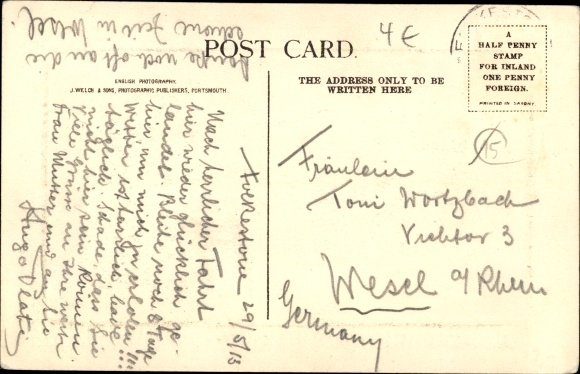 4 €
POST CARD.
A
HALF PENNY
STAMP
FOR INLAND
ONE PENNY
FOREIGN.
PRINTED IN SAXONY
ENGLISH PHOTOGRAPHY.
J. WELCH & SONS, PHOTOGRAPHIC PUBLISHERS, PORTSMOUTH.
THE ADDRESS ONLY TO BE
WRITTEN HERE
15
Folkestone 29/5/13
Nach herrlicher Fahrt
hier wieder glücklich ge-
landet. Bleibe noch 8 Tage
hier um mich zu erholen !!!
Wetter ist herrlich, bade
täglich. Schade, dass Sie
nicht hier sein können.
Viele Grüsse an Ihre werte
Frau Mutter und an Sie
Hugo
Denke noch oft an die
schöne Zeit in Wesel.
Fräulein
Toni Wortzbach
Viehtor 3
Wesel a/Rhein
Germany